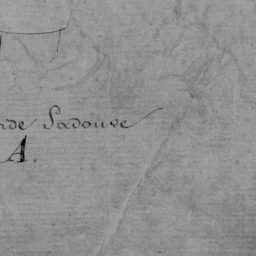 nde Ladouve
A.